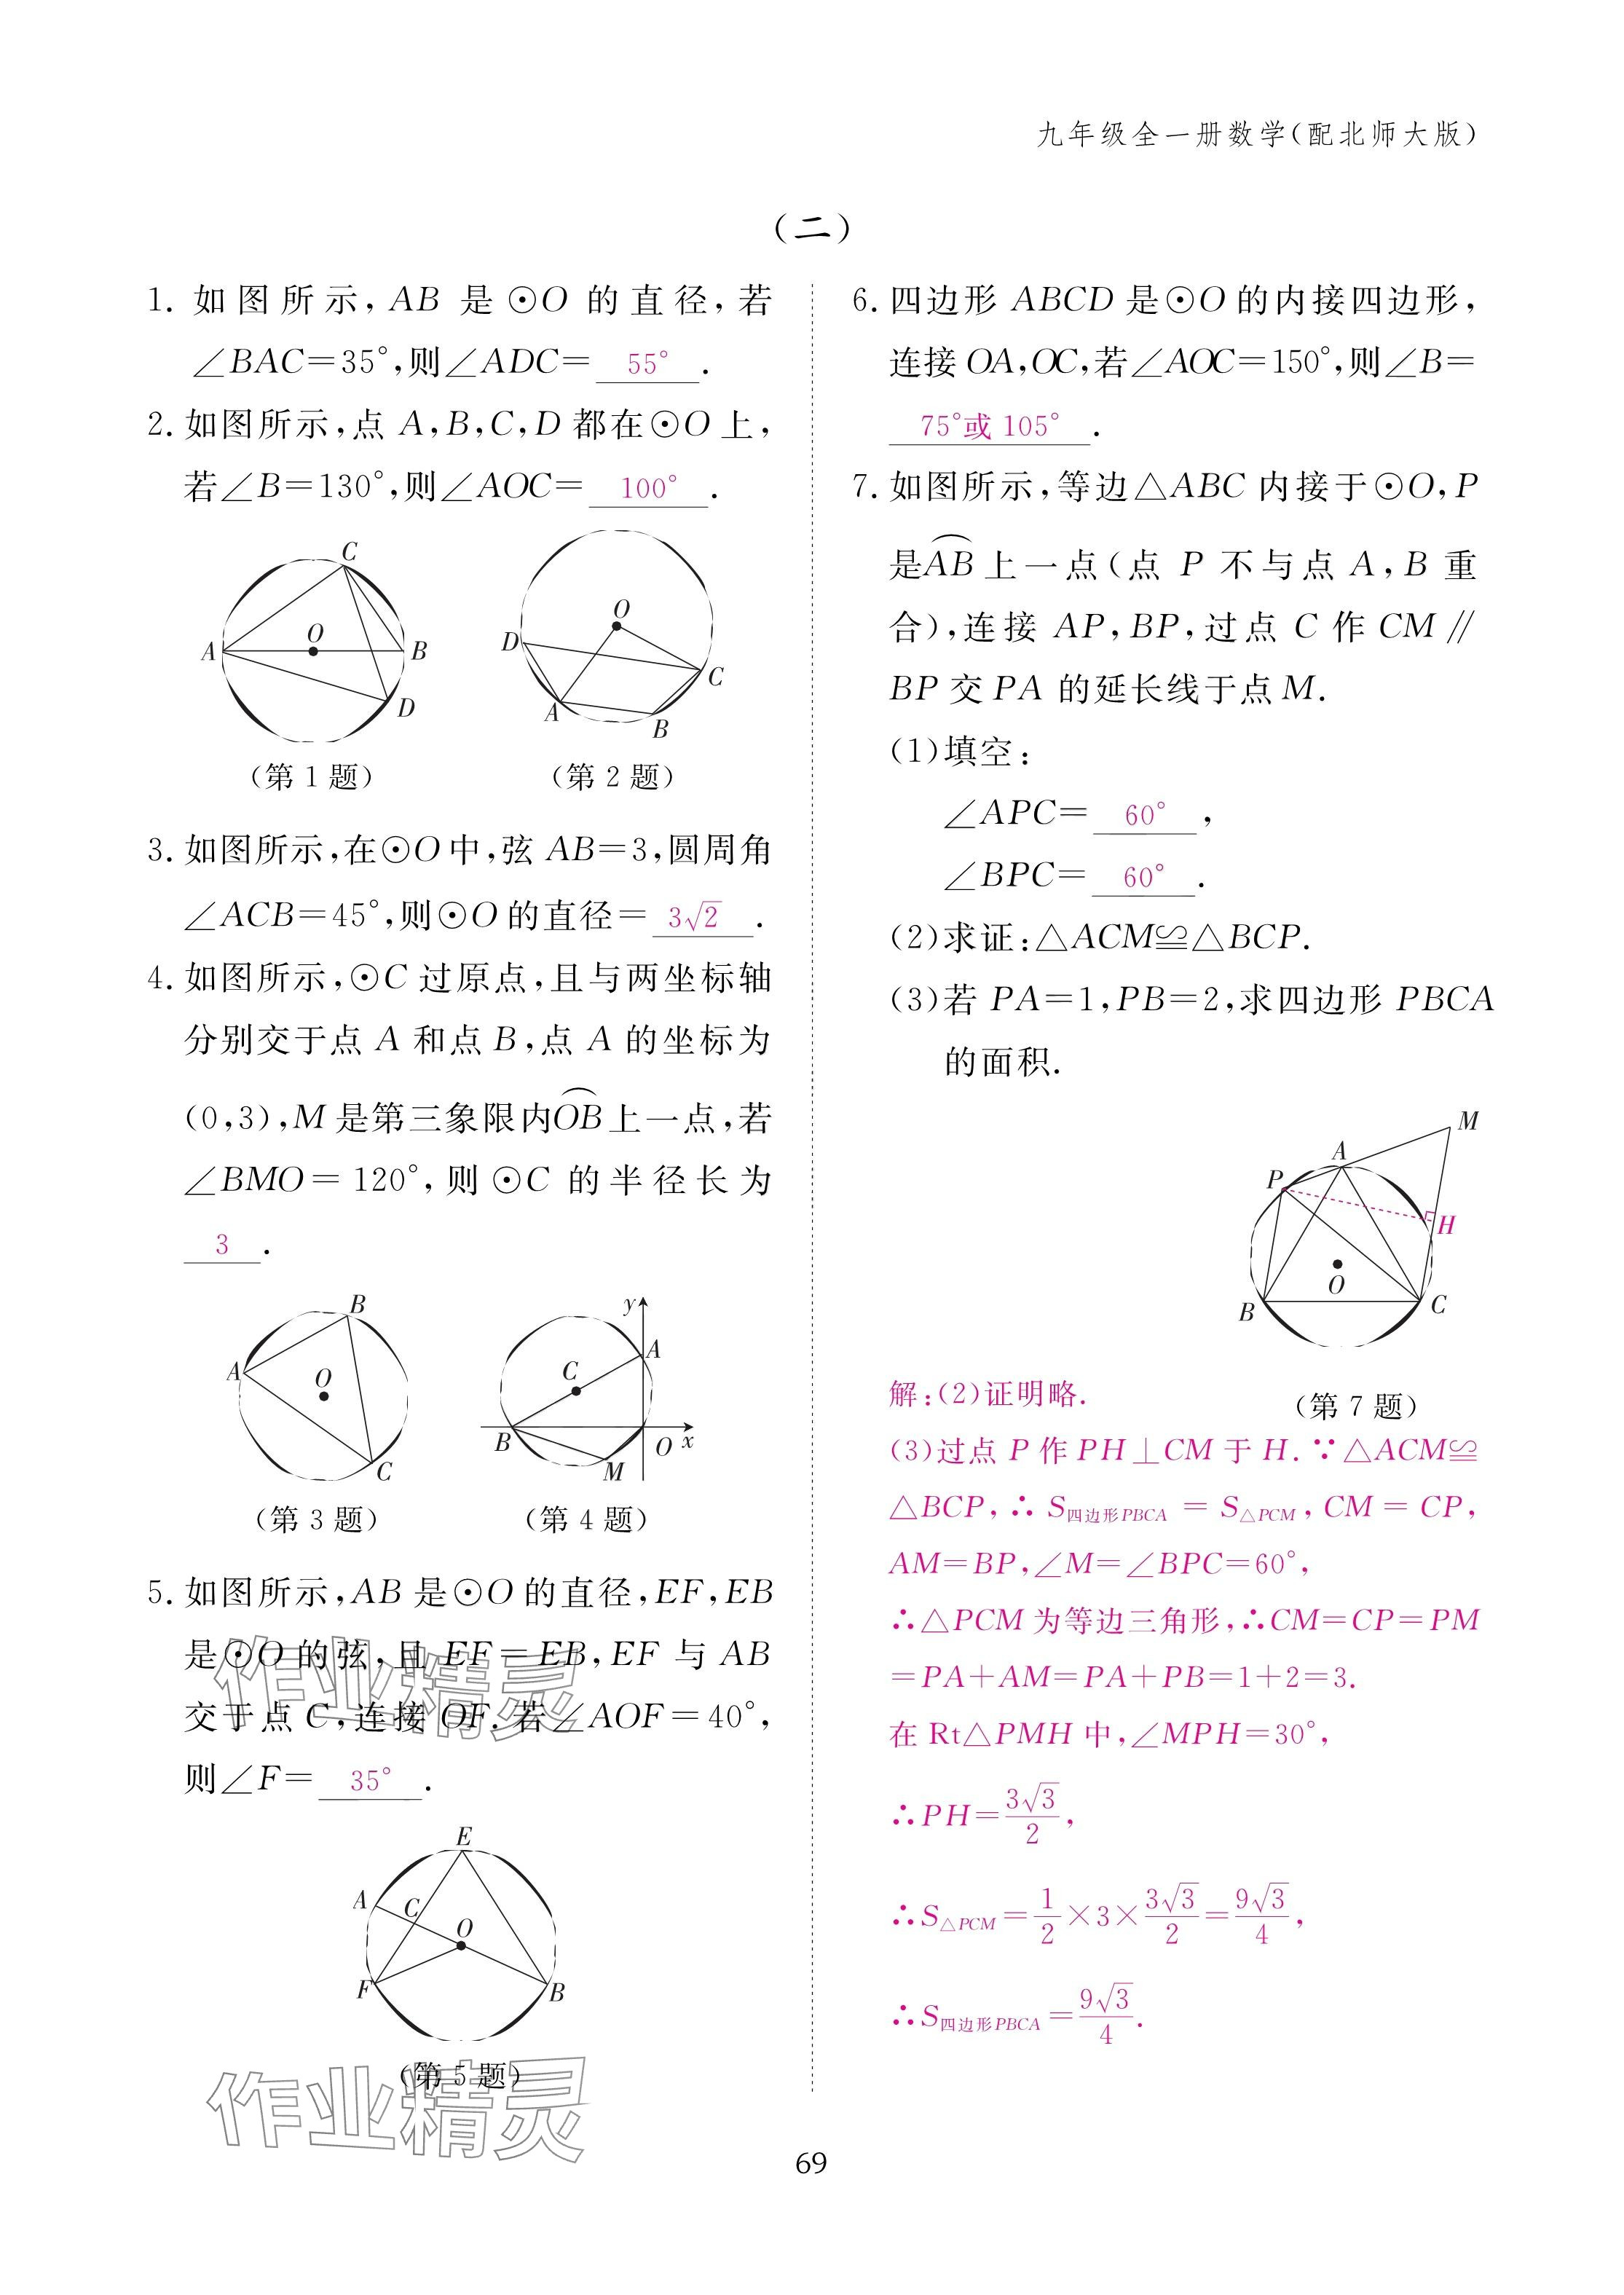 九年级全一册数学(配北师大版)
(二)
1. 如图所示, AB 是⊙O 的直径,若
∠BAC=35°,则∠ADC= 55° .
2. 如图所示,点 A,B,C,D 都在⊙O上,
若∠B=130°,则∠AOC= 100° .
C
O
A
B
D
(第 1 题)
O
D
C
A
B
(第 2 题)
3. 如图所示,在⊙O中,弦 AB=3,圆周角
∠ACB=45°,则⊙O的直径= 3√2 .
4. 如图所示,⊙C 过原点,且与两坐标轴
分别交于点 A 和点 B,点 A 的坐标为
(0,3),M 是第三象限内⌒OB上一点,若
∠BMO=120°,则⊙C 的半径长为
3 .
B
A
O
C
(第 3 题)
y
A
C
B
O
x
M
(第 4 题)
5. 如图所示,AB 是⊙O 的直径,EF,EB
是⊙O 的弦,且 EF=EB,EF 与 AB
交于点 C,连接 OF.若∠AOF=40°,
则∠F= 35° .
作业精灵
E
A
C
O
F
B
(第 5 题)
作业精灵
6. 四边形 ABCD 是⊙O的内接四边形,
连接OA,OC,若∠AOC=150°,则∠B=
75°或 105° .
7. 如图所示,等边△ABC 内接于⊙O,P
是⌒AB上一点(点 P 不与点 A,B 重
合),连接 AP,BP,过点 C 作 CM∥
BP 交 PA 的延长线于点 M.
(1)填空:
∠APC= 60° ,
∠BPC= 60° .
(2)求证:△ACM≌△BCP.
(3)若 PA=1,PB=2,求四边形 PBCA
的面积.
M
A
P
H
O
B
C
(第 7 题)
解:(2)证明略.
(3)过点 P 作 PH⊥CM 于 H.∵△ACM≌
△BCP,∴S四边形PBCA=S△PCM,CM=CP,
AM=BP,∠M=∠BPC=60°,
∴△PCM 为等边三角形,∴CM=CP=PM
=PA+AM=PA+PB=1+2=3.
在 Rt△PMH 中,∠MPH=30°,
∴PH=3√3/2,
∴S△PCM=1/2×3×3√3/2=9√3/4,
∴S四边形PBCA=9√3/4.
69